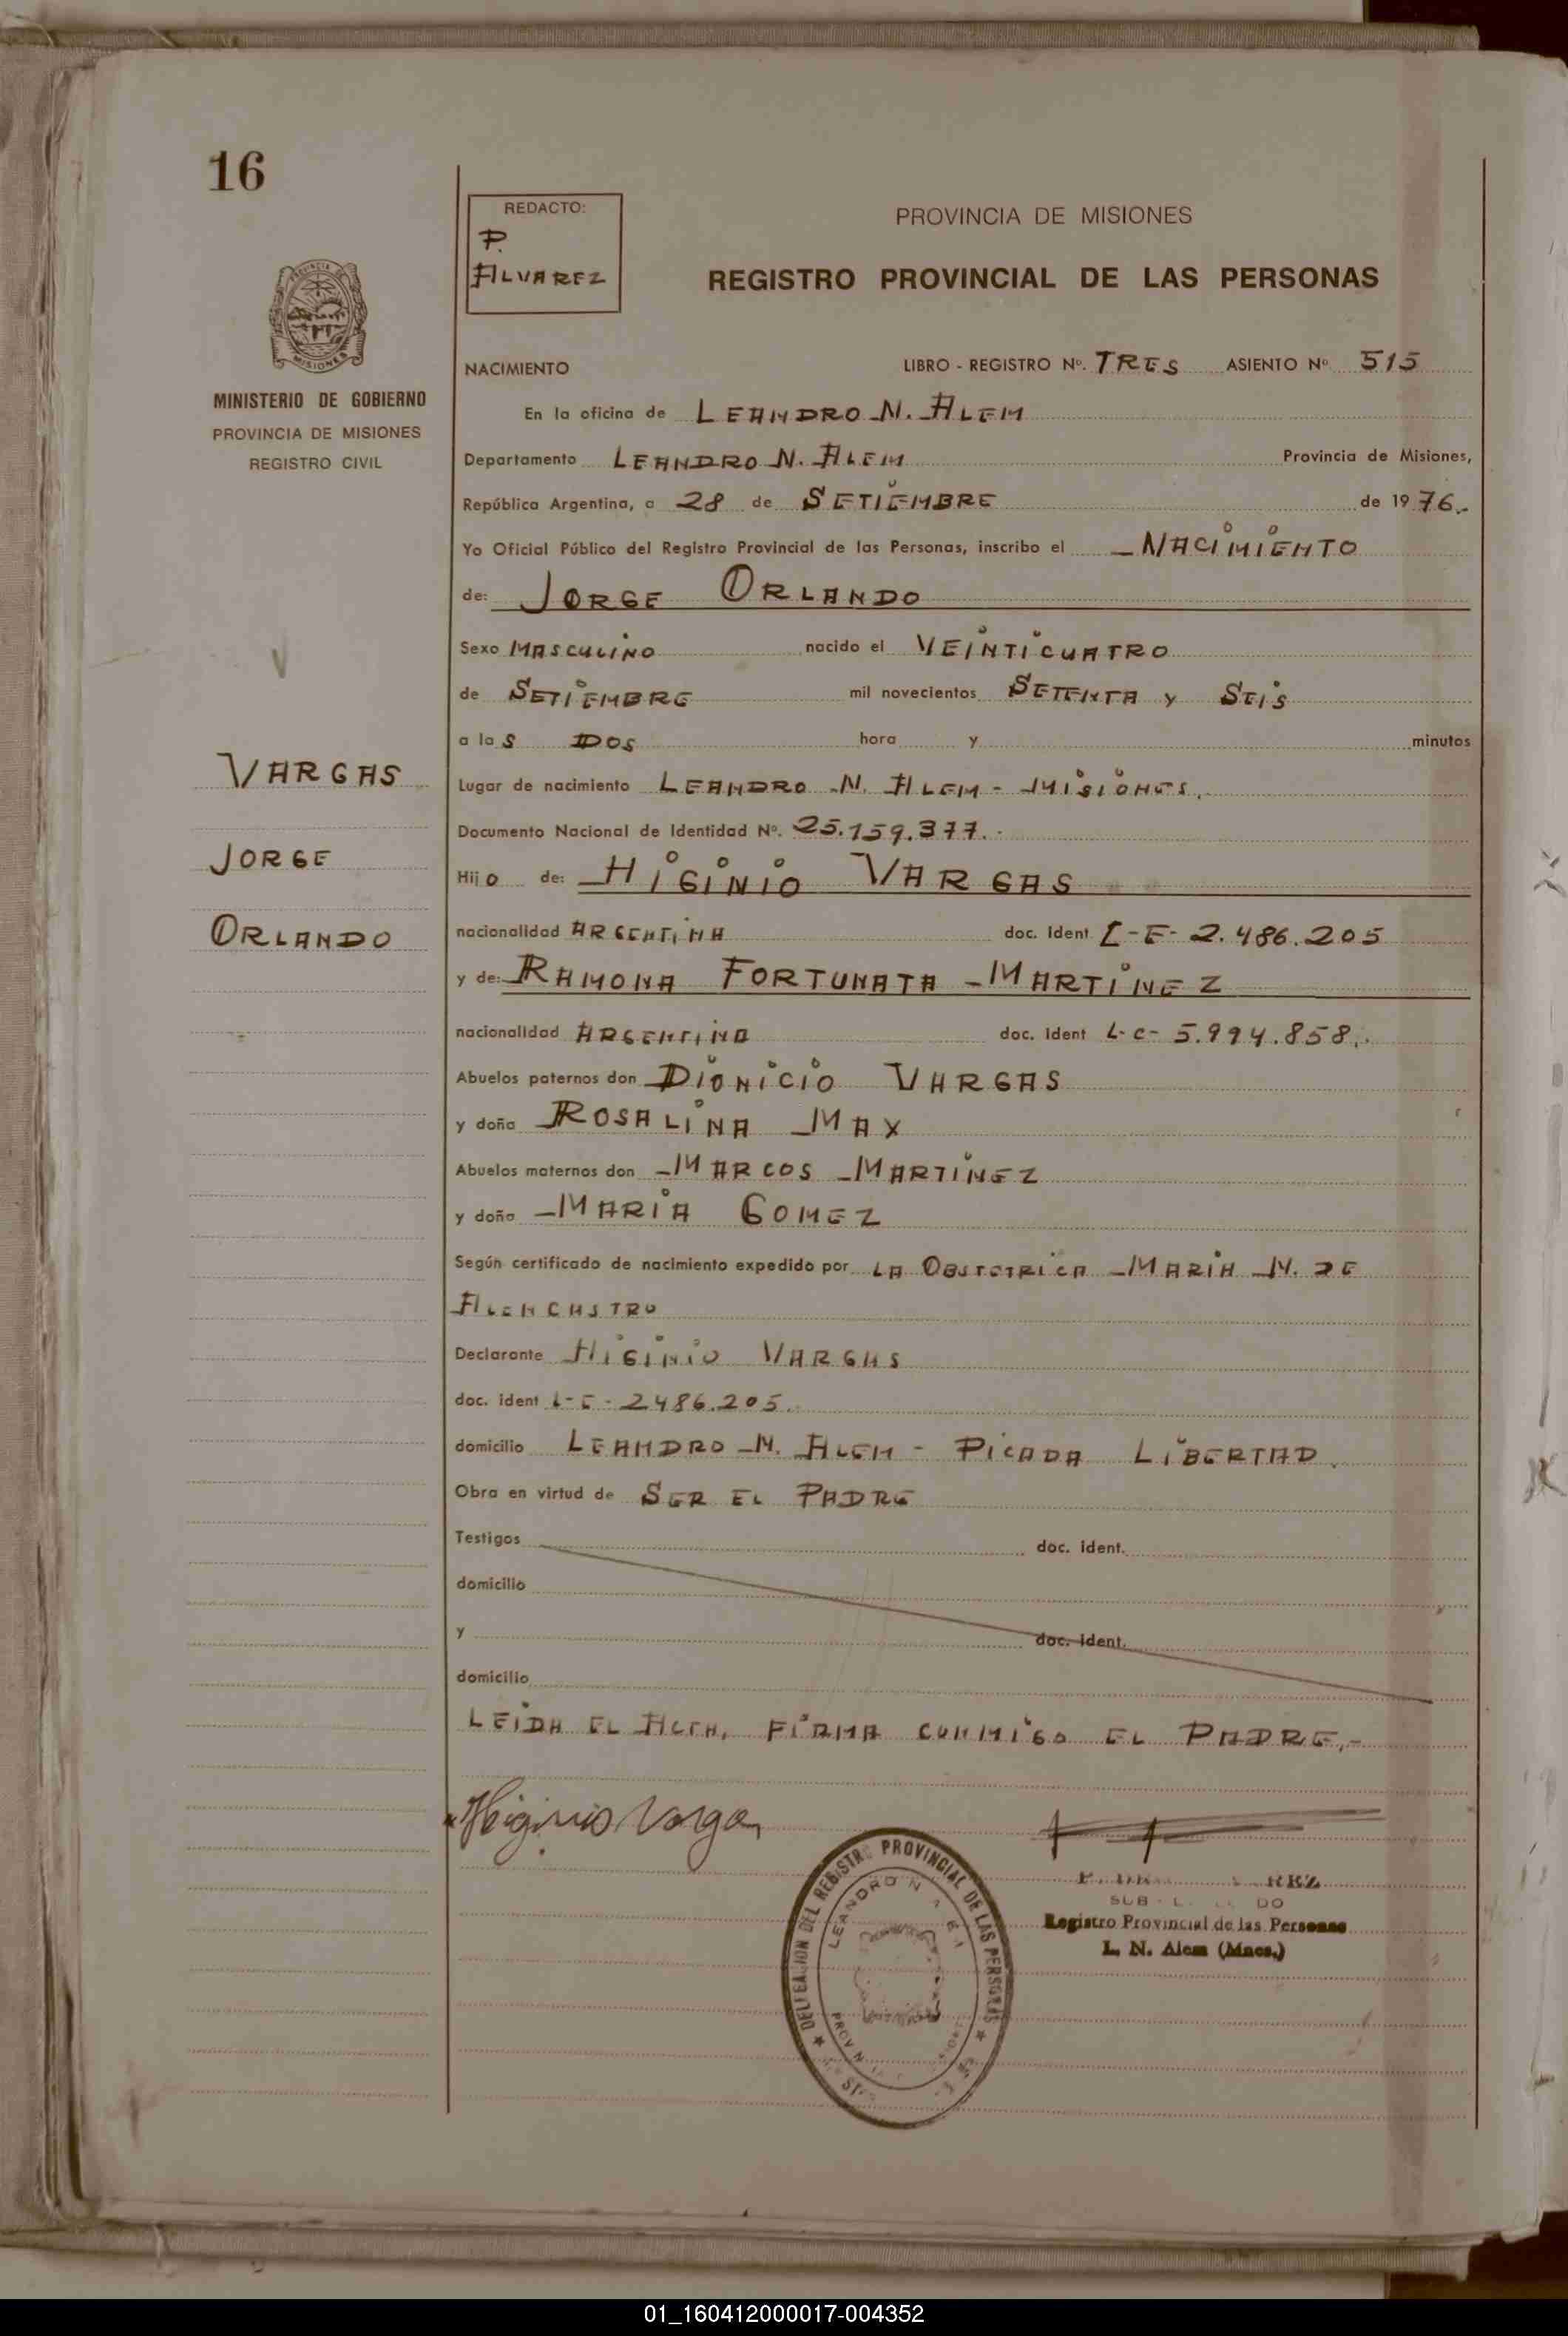 16
REDACTO:
P.
ALVAREZ
PROVINCIA DE MISIONES
REGISTRO PROVINCIAL DE LAS PERSONAS
MINISTERIO DE GOBIERNO
PROVINCIA DE MISIONES
REGISTRO CIVIL
NACIMIENTO LIBRO - REGISTRO Nº. TRES ASIENTO Nº 515
En la oficina de LEANDRO N. ALEM
Departamento LEANDRO N. ALEM Provincia de Misiones,
República Argentina, a 28 de SETIEMBRE de 1976.-
Yo Oficial Público del Registro Provincial de las Personas, inscribo el NACIMIENTO
de: JORGE ORLANDO
Sexo MASCULINO nacido el VEINTICUATRO
de SETIEMBRE mil novecientos SETENTA y SEIS
a las DOS hora y minutos
VARGAS
JORGE
ORLANDO
Lugar de nacimiento LEANDRO N. ALEM - MISIONES.
Documento Nacional de Identidad Nº. 25.159.377.-
Hijo de: HIGINIO VARGAS
nacionalidad ARGENTINA doc. Ident L-E- 2.486.205
y de: RAMONA FORTUNATA MARTINEZ
nacionalidad ARGENTINA doc. Ident L-C- 5.994.858.-
Abuelos paternos don DIONICIO VARGAS
y doña ROSALINA MAX
Abuelos maternos don MARCOS MARTINEZ
y doña MARIA GOMEZ
Según certificado de nacimiento expedido por LA OBSTETRICA MARIA N. DE
ALENCASTRO
Declarante HIGINIO VARGAS
doc. ident L-E- 2486.205.
domicilio LEANDRO N. ALEM - PICADA LIBERTAD.
Obra en virtud de SER EL PADRE
Testigos doc. ident.
domicilio
y doc. ident.
domicilio
LEIDA EL ACTA, FIRMA CONMIGO EL PADRE.-
Higinio Vargas
DELEGACION DEL REGISTRO PROVINCIAL DE LAS PERSONAS
LEANDRO N. ALEM
Registro Provincial de las Personas
L. N. Alem (Mnes.)
01_160412000017-004352